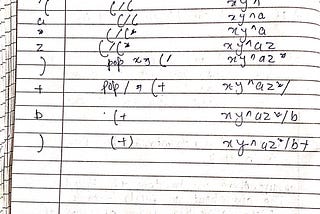 ( (/( xy^
a (/( xy^a
* (/(* xy^a
z (/(* xy^az
) pop xx (/ xy^az*
+ pop / x (+ xy^az*/
b (+ xy^az*/b
) (+) xy^az*/b+